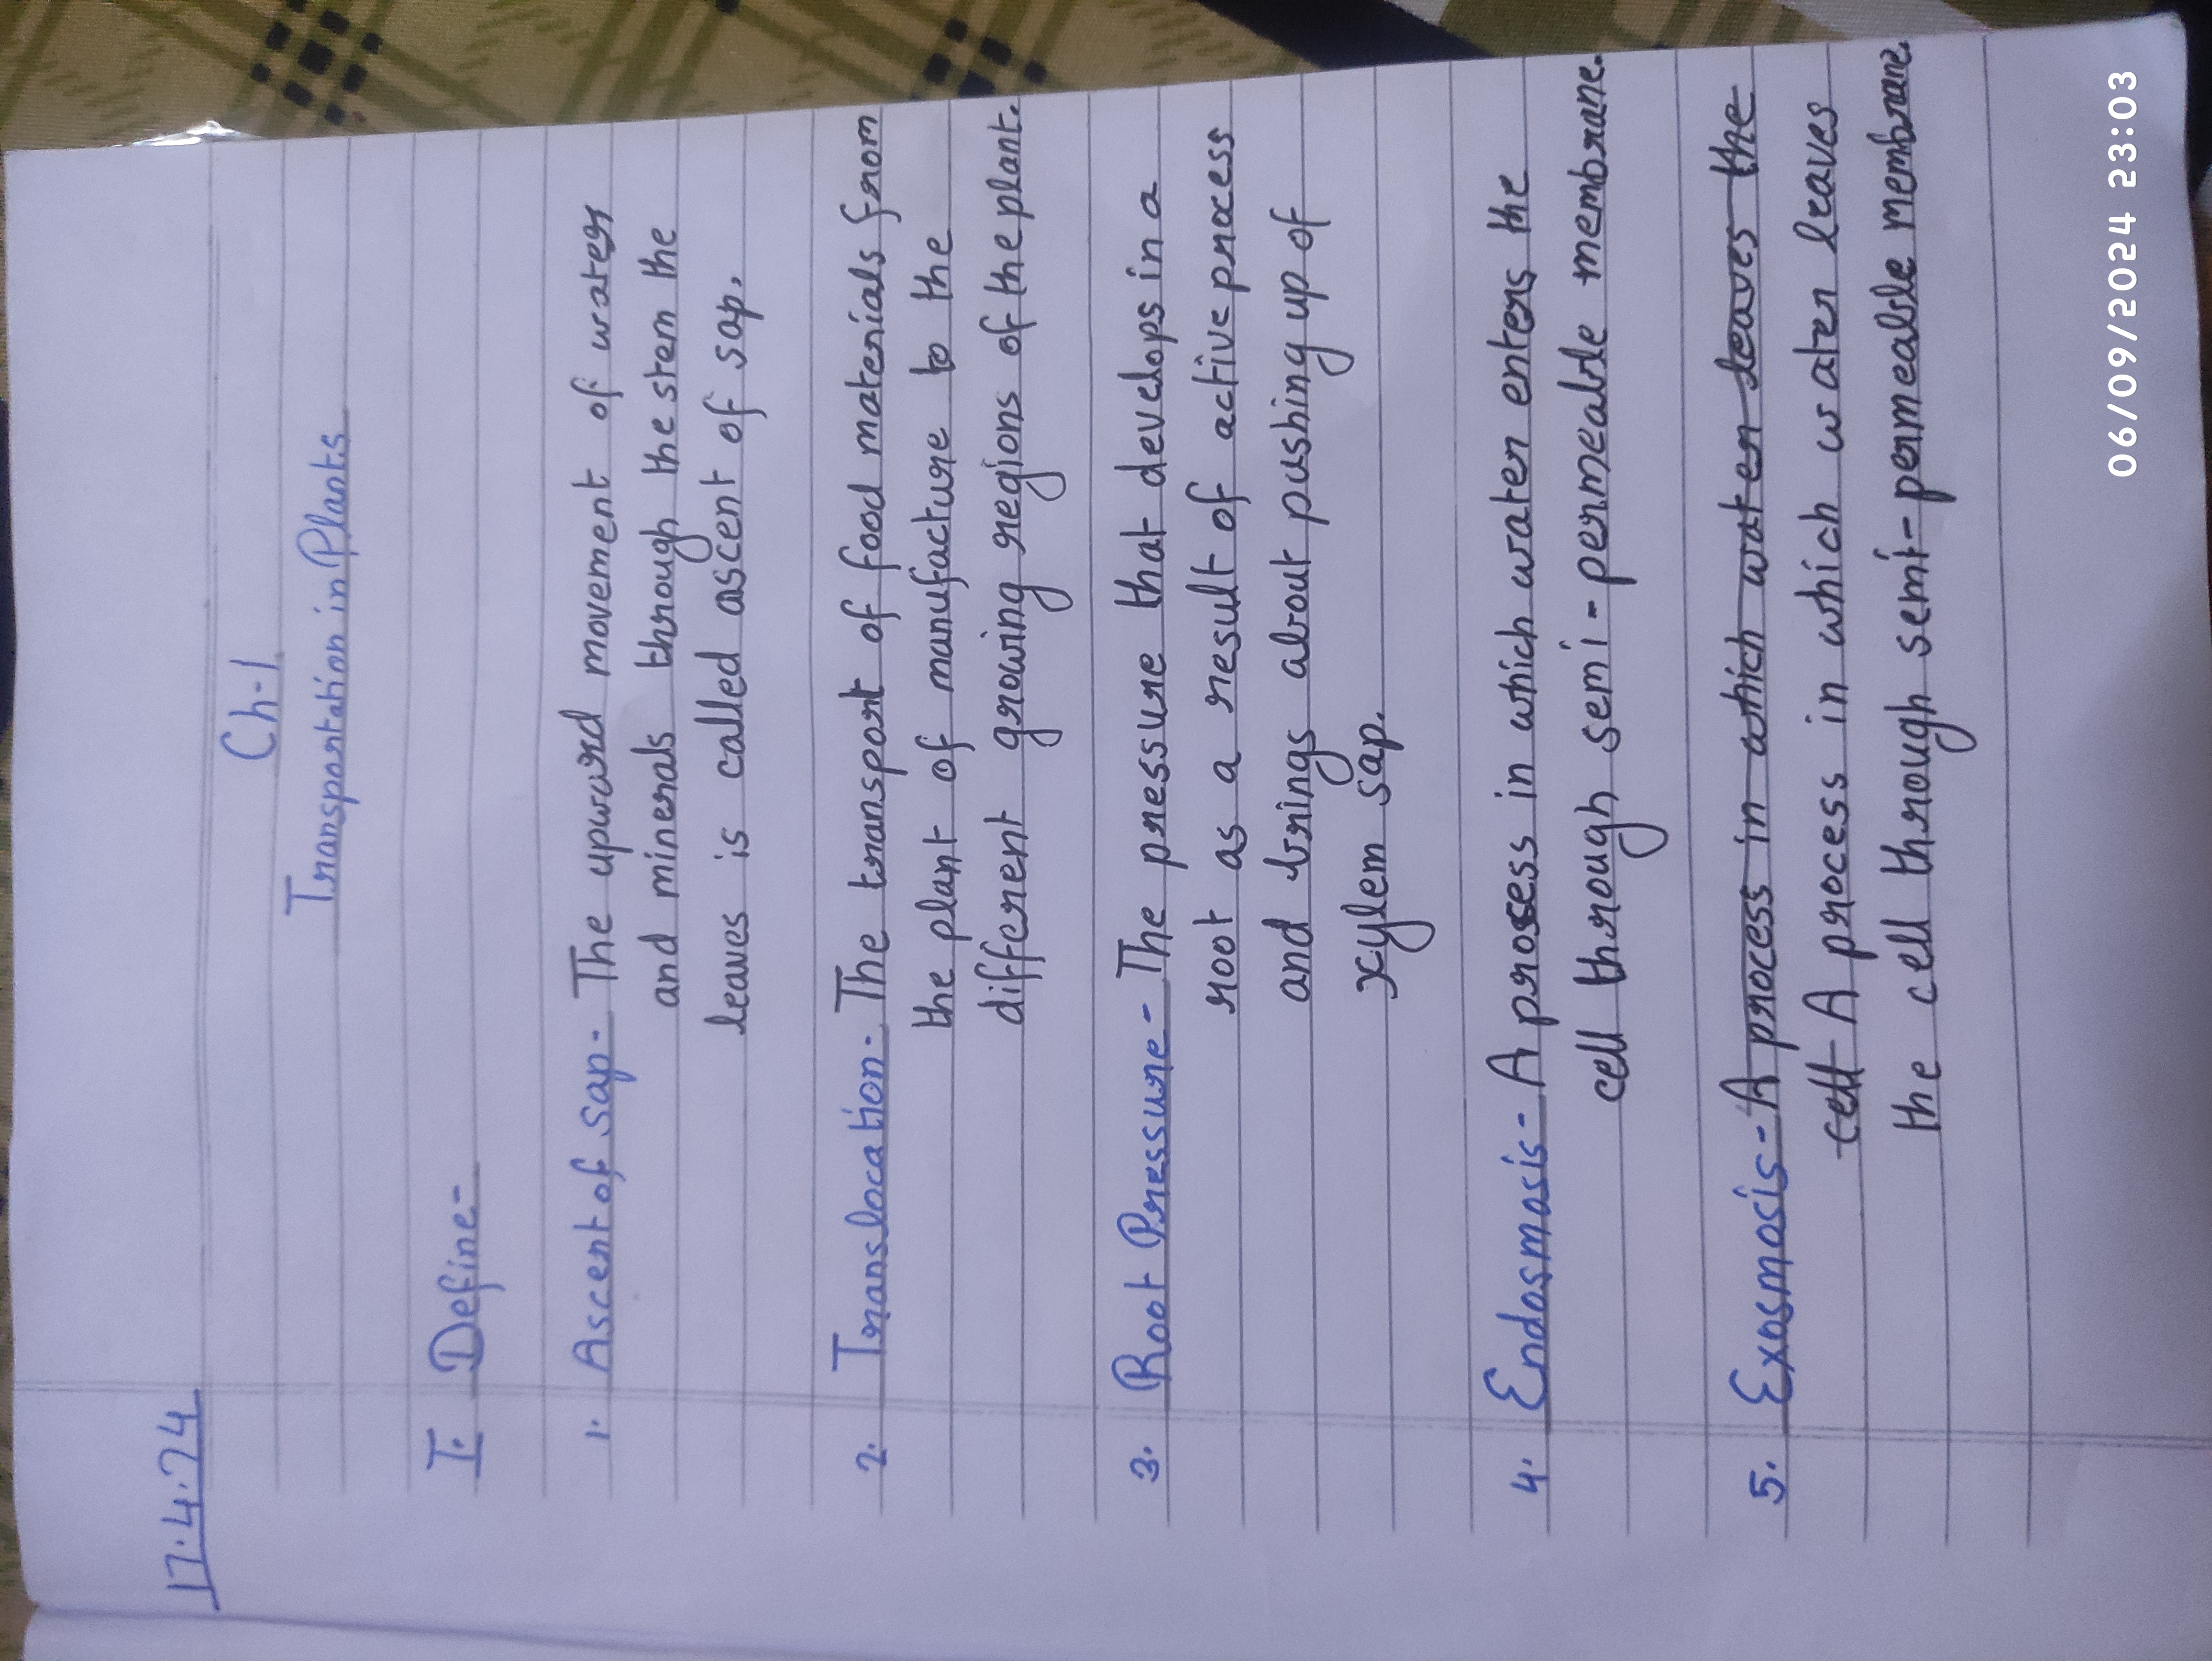 17.4.24
Ch-1
Transportation in Plants
I. Define-
1. Ascent of sap- The upward movement of water
and minerals through the stem the
leaves is called ascent of sap.
2. Translocation- The transport of food materials from
the plant of manufacture to the
different growing regions of the plant.
3. Root Pressure- The pressure that develops in a
root as a result of active process
and brings about pushing up of
xylem sap.
4. Endosmosis- A process in which water enters the
cell through semi-permeable membrane.
5. Exosmosis- A process in which water leaves the
cell A process in which water leaves
the cell through semi-permeable membrane.
06/09/2024 23:03